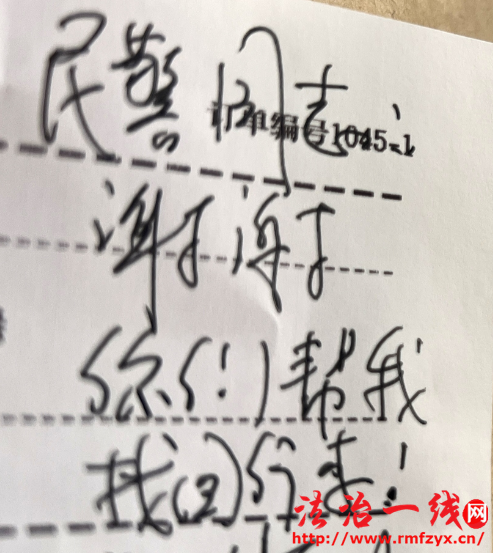 民警同志
订单编号1045-1
谢谢
你们帮我
找回行李!
法治一线网
http://www.rmfzyx.cn/